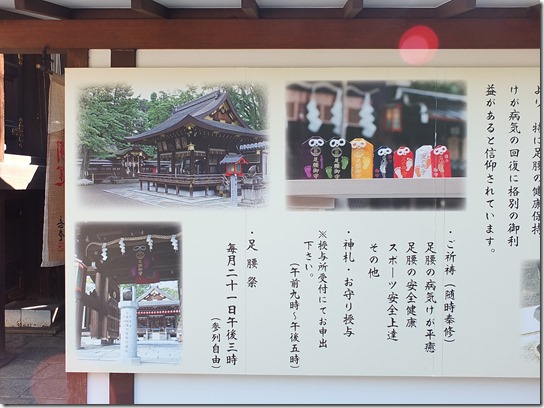 より、特に足腰の健康保持
けが病気の回復に格別の御利
益があると信仰されています。
・ご祈祷（随時奉修）
足腰の病気けが平癒
足腰の安全健康
スポーツ安全上達
その他
・神札・お守り授与
※授与所受付にてお申出
下さい。
（午前九時～午後五時）
・足腰祭
毎月二十一日午後三時
（参列自由）
足腰御守
足腰御守